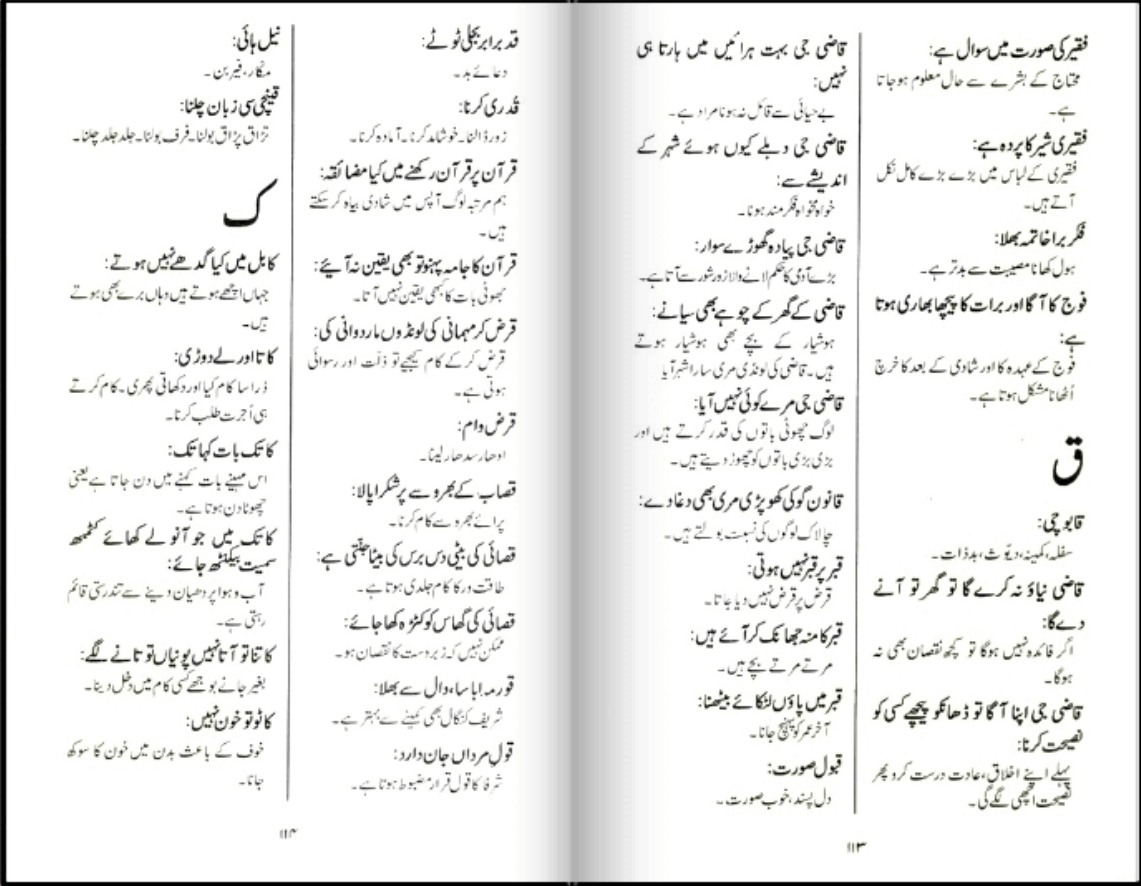 فقیر کی صورت میں سوال ہے:
محتاج کے بشرے سے حال معلوم ہو جاتا
ہے۔
فقیری شیر کا پردہ ہے:
فقیری کے لباس میں بڑے بڑے کامل نکل
آتے ہیں۔
فکر برا خاتمہ بھلا:
ہول کھانا مصیبت سے بدتر ہے۔
فوج کا آگا اور برات کا پیچھا بھاری ہوتا
ہے:
فوج کے عہدہ کا اور شادی کے بعد کا خرچ
اُٹھانا مشکل ہوتا ہے۔
ق
قابوچی:
سفلہ، کمینہ، دیّوث، بدذات۔
قاضی نیاؤ نہ کرے گا تو گھر تو آنے
دے گا:
اگر فائدہ نہیں ہوگا تو کچھ نقصان بھی نہ
ہوگا۔
قاضی جی اپنا آگا تو ڈھانکو پیچھے کسی کو
نصیحت کرنا:
پہلے اپنے اخلاق، عادت درست کرو پھر
نصیحت اچھی لگے گی۔
قاضی جی بہت ہرائیں میں ہارتا ہی
نہیں:
بے حیائی سے قائل نہ ہونا مراد ہے۔
قاضی جی دبلے کیوں ہوئے شہر کے
اندیشے سے:
خواہ مخواہ فکر مند ہونا۔
قاضی جی پیادہ گھوڑے سوار:
بڑے آدمی کا حکم لانے والا زور شور سے آتا ہے۔
قاضی کے گھر کے چوہے بھی سیانے:
ہوشیار کے بچے بھی ہوشیار ہوتے
ہیں۔ قاضی کی لونڈی مری سارا شہر آیا
قاضی جی مرے کوئی نہیں آیا:
لوگ چھوٹی باتوں کی قدر کرتے ہیں اور
بڑی بڑی باتوں کو چھوڑ دیتے ہیں۔
قانون گو کی کھوپڑی مری بھی دغا دے:
چالاک لوگوں کی نسبت بولتے ہیں۔
قبر پر قبر نہیں ہوتی:
قرض پر قرض نہیں دیا جاتا۔
قبر کا منہ جھانک کر آئے ہیں:
مرتے مرتے بچے ہیں۔
قبر میں پاؤں لٹکائے بیٹھنا:
آخر عمر کو پہنچ جانا۔
قبول صورت:
دل پسند، خوب صورت۔
۱۱۳
قد برابر بجلی ٹوٹے:
دعائے بد۔
قُدری کرنا:
زور ڈالنا۔ خوشامد کرنا۔ آمادہ کرنا۔
قرآن پر قرآن رکھنے میں کیا مضائقہ:
ہم مرتبہ لوگ آپس میں شادی بیاہ کر سکتے
ہیں۔
قرآن کا جامہ پہنو تو بھی یقین نہ آیئے:
جھوٹی بات کا کبھی یقین نہیں آتا۔
قرض کر مہمانی کی لونڈوں مار دوانی کی:
قرض کر کے کام کیجیے تو ذلت اور رسوائی
ہوتی ہے۔
قرض وام:
ادھار سدھار لینا۔
قصاب کے بھروسے پر شکرا پالا:
پرائے بھروسے کام کرنا۔
قصائی کی بیٹی دس برس کی بیٹا جنتی ہے:
طاقت ور کا کام جلدی ہوتا ہے۔
قصائی کی گھاس کو کٹڑہ کھا جائے:
ممکن نہیں کہ زبردست کا نقصان ہو۔
قورمہ باسا، دال سے بھلا:
شریف کنگال بھی کمینے سے بہتر ہے۔
قولِ مرداں جان دارد:
شرفا کا قول قرار مضبوط ہوتا ہے۔
نیل ہائی:
مکّار، فیرین۔
قینچی سی زبان چلنا:
تڑاق پڑاق بولنا۔ فرف بولنا۔ جلد جلد چلنا۔
ک
کابل میں کیا گدھے نہیں ہوتے:
جہاں اچھے ہوتے ہیں وہاں برے بھی ہوتے
ہیں۔
کاتا اور لے دوڑی:
ذرا سا کام کیا اور دکھاتی پھری۔ کام کرتے
ہی اُجرت طلب کرنا۔
کاتک بات کہا تک:
اس مہینے بات کہنے میں دن جاتا ہے یعنی
چھوٹا دن ہوتا ہے۔
کاتک میں جو آنولے کھائے کٹمبھ
سمیت بیکنٹھ جائے:
آب و ہوا پر دھیان دینے سے تندرستی قائم
رہتی ہے۔
کاتنا تو آتا نہیں پونیاں تو تانے لگے:
بغیر جانے بوجھے کسی کام میں دخل دینا۔
کاٹو تو خون نہیں:
خوف کے باعث بدن میں خون کا سوکھ
جانا۔
۱۱۴